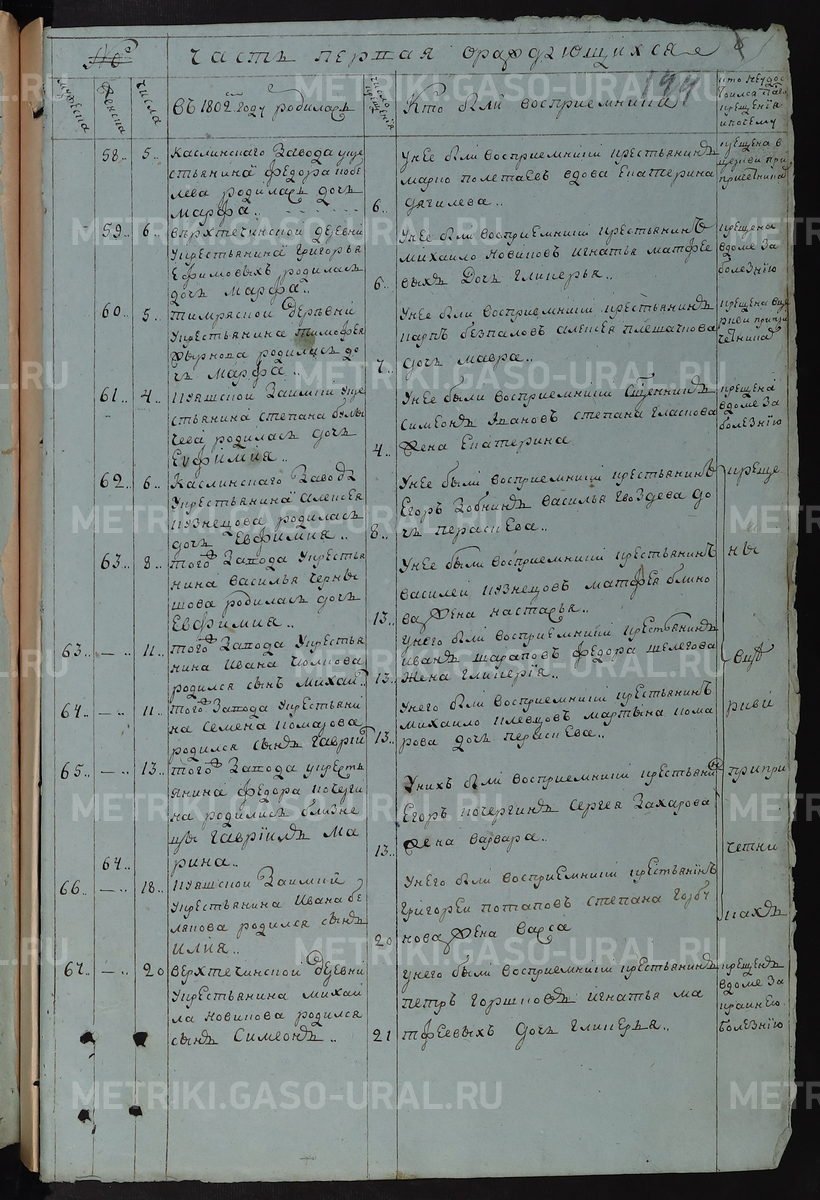 №
часть первая о раждающихся
197
мужеска
женска
числа
въ 1802 году родилась
число крещения
Кто были восприемники
58.. 5.
Каслинскаго Завода у кре
стьянина федора кобе
лева родилась дочь
Марфа..
6.
У нее были восприемники крестьянинъ
марко полетаевъ вдова Екатерина
дягилева..
крещена в
церкви при
причетникахъ
59.. 6..
верхтечинской деревни
у крестьянина Григорья
Ефимовыхъ родилась
дочь Марфа..
6..
У нее были восприемники крестьянинъ
михайло новиковъ игнатья матфее
выхъ дочь гликерья..
крещена
вдоме за
болезнiю
60.. 5..
у крестьянина тимофея
родилась до
чь Марфа..
7..
У нее были восприемники крестьянинъ
карпъ безпаловъ алексея плешачкова
дочь мавра..
61.. 4..
куяшской Заимки у кре
стьянина степана булы
чева родилась дочь
Евфимия..
4..
У нее были восприемники
Симеонъ Ивановъ степана гласкова
жена Екатерина
крещена
вдоме за
болезнiю
62.. 6..
Каслинскаго Завода
у крестьянина алексея
кузнецова родилась
дочь Евфимия..
8..
У нее были восприемники крестьянинъ
Егоръ Зобнинъ василья гвоздева до
чь пераскева..
креще
63.. 8..
того Завода у крестья
нина василья черны
шова родилась дочь
Евфимия..
13..
У нее были восприемники крестьянинъ
василей кузнецовъ матфея блино
ва жена настасья..
ны
63.. —.. 11..
того Завода у крестья
нина ивана
родился сынъ михаил..
13..
у него были восприемники крестьянинъ
иванъ шараповъ федора щелегова
жена гликерiя..
вцр
64.. —.. 11..
того Завода у крестьяни
на семена комарова
родился сынъ гаврiил
13..
У него были восприемники крестьянинъ
михайло плевцовъ мартына кома
рова дочь пераскева..
кви
65.. —.. 13..
того Завода у кресть
янина федора кочерги
на родились близне
цы гаврiилъ ма
64..
рина..
13..
У нихъ были восприемники крестьяни
Егоръ кочергинъ сергея захарова
жена варвара..
при при
четни
66.. —.. 18..
куяшской Заимки
у крестьянина ивана бе
лякова родился сынъ
илия..
20
У него были восприемники крестьянинъ
григорей потаповъ степана горбу
нова жена васса
кахъ
67.. —.. 20
верхтечинской деревни
у крестьянина михай
ла новикова родился
сынъ Симеонъ..
21
у него были восприемники крестьянинъ
петръ горшковъ игнатья ма
тфеевыхъ дочь гликерья..
крещенъ
вдоме за
крайнею
болезнiю
METRIKI.GASO-URAL.RU